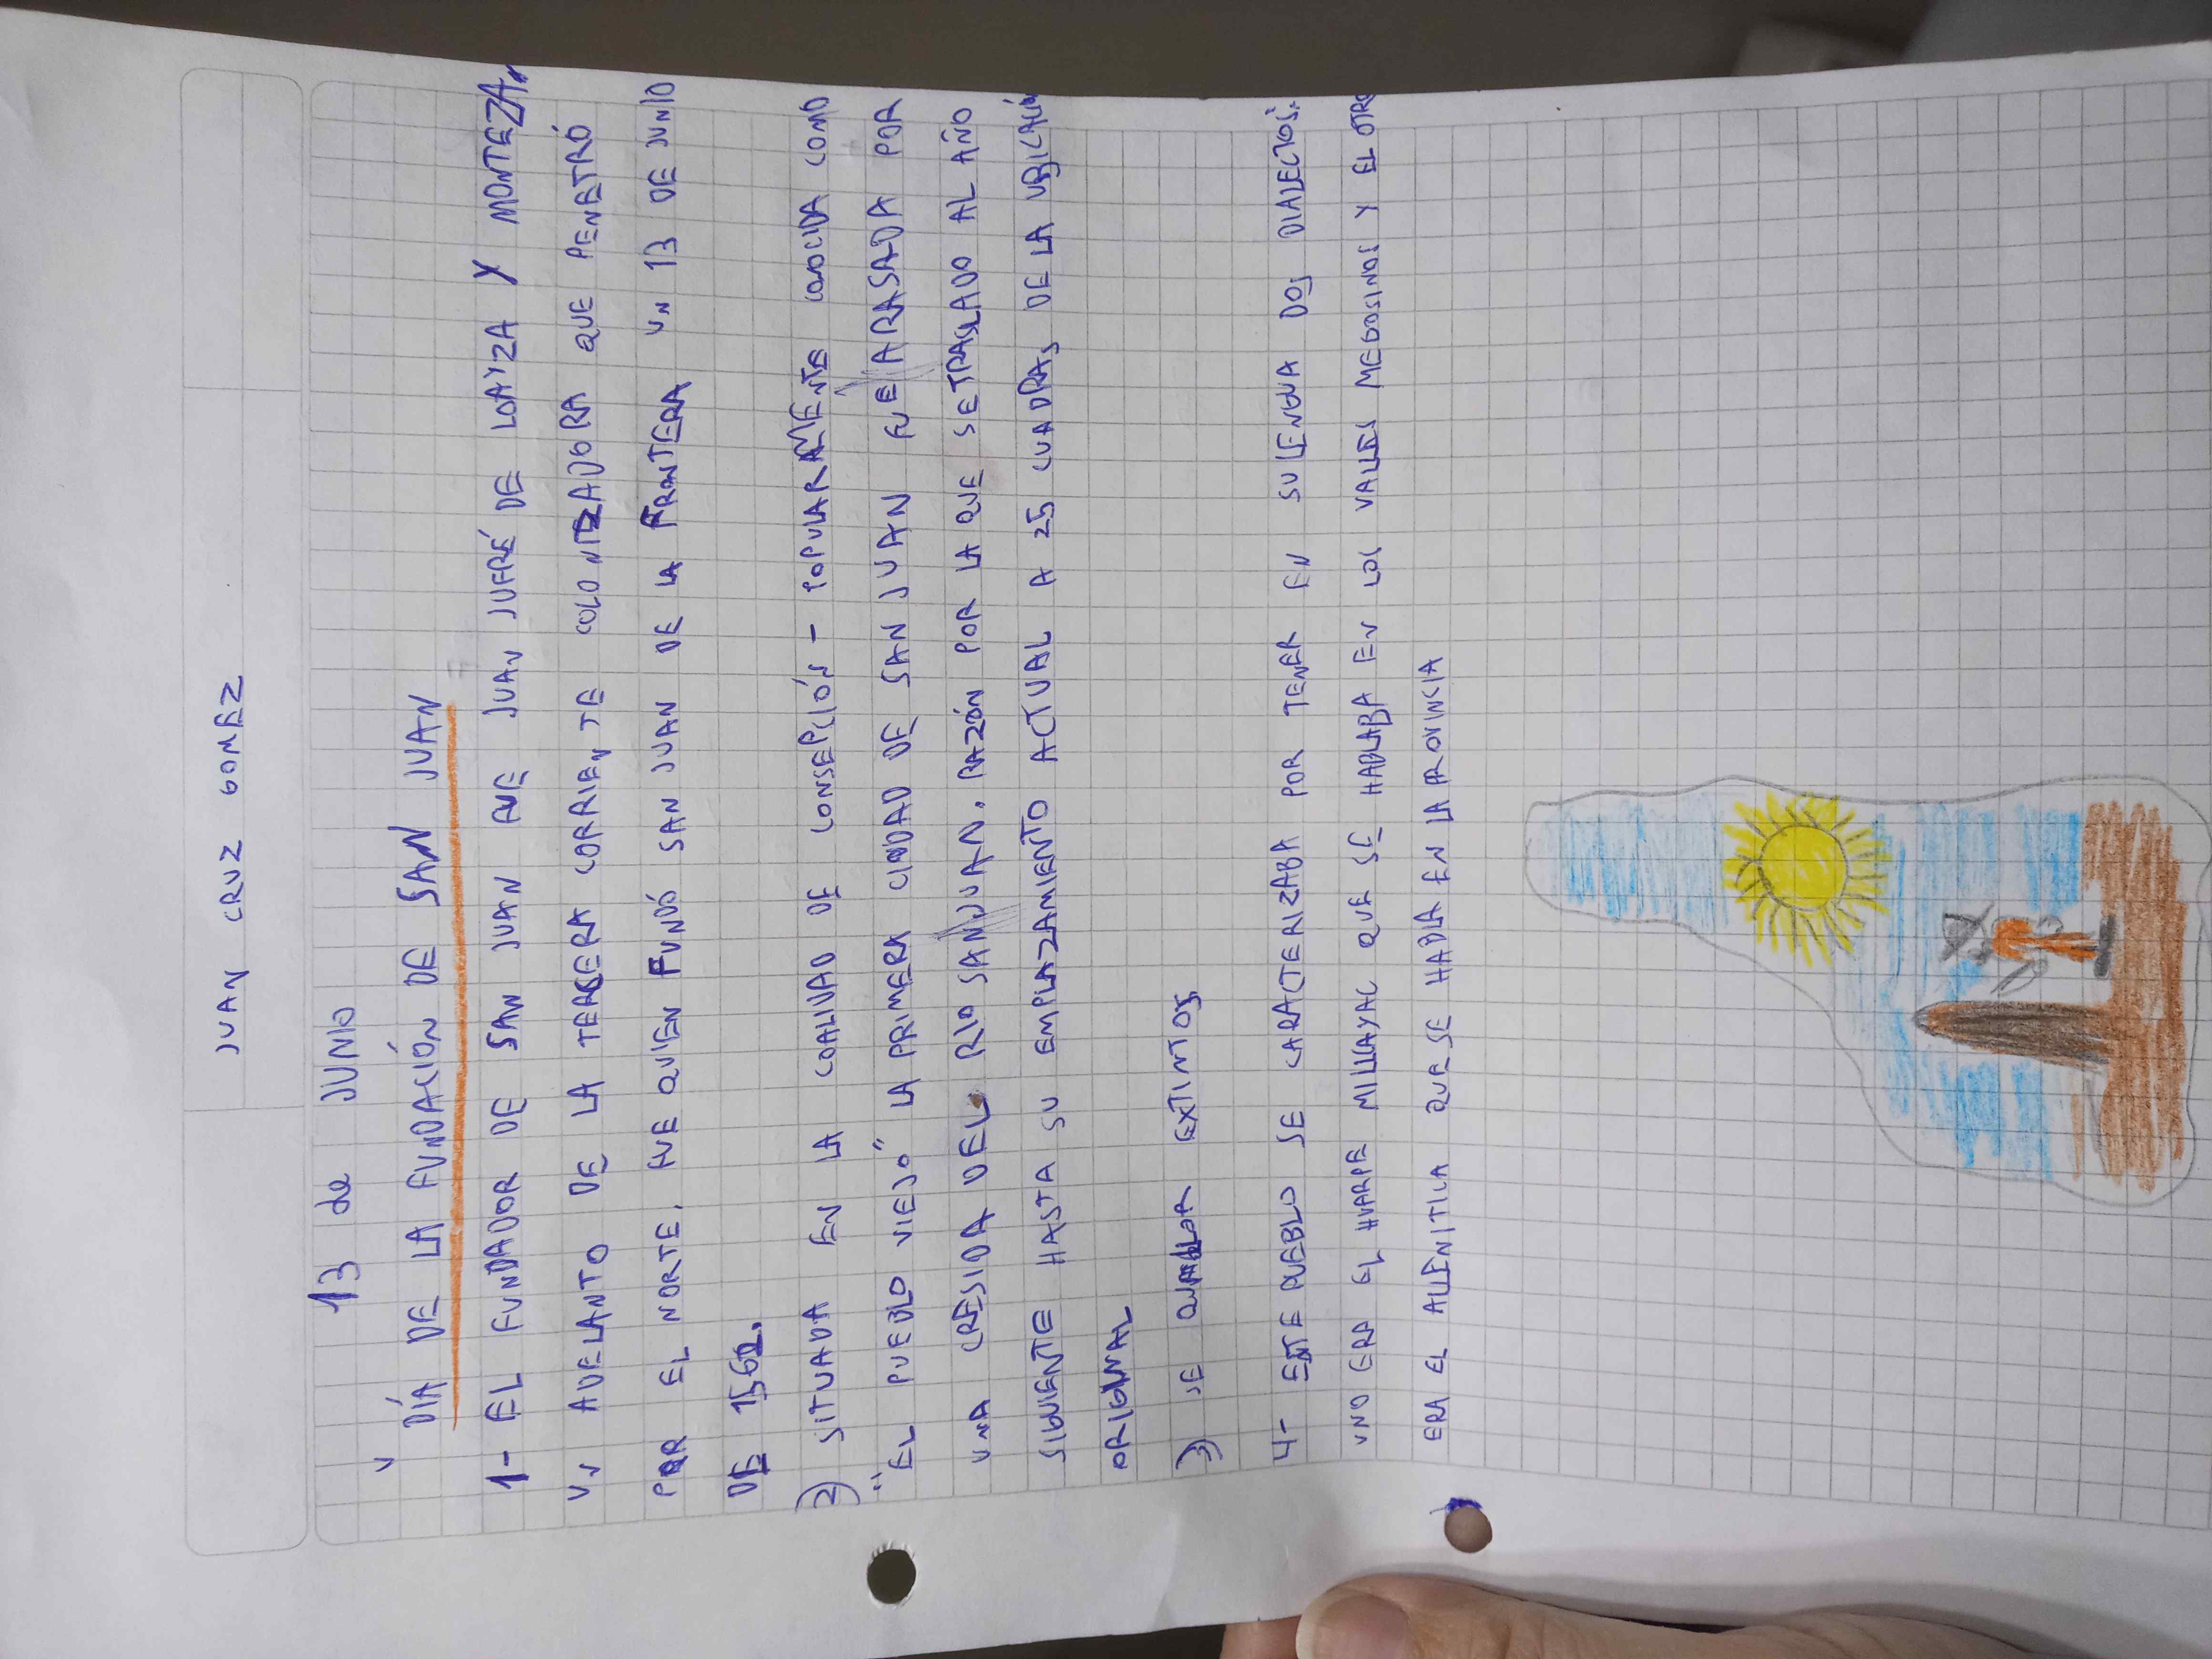 JUAN CRUZ GOMEZ
13 de JUNIO
DÍA DE LA FUNDACIÓN DE SAN JUAN
1- EL FUNDADOR DE SAN JUAN FUE JUAN JUFRÉ DE LOAYZA Y MONTEZA.
UN ADELANTO DE LA TERCERA CORRIENTE COLONIZADORA QUE PENETRÓ
POR EL NORTE, FUE QUIEN FUNDÓ SAN JUAN DE LA FRONTERA UN 13 DE JUNIO
DE 1562.
2) SITUADA EN LA COALIDAD DE CONSEPCIÓN - POPULARMENTE CONOCIDA COMO
"EL PUEBLO VIEJO" LA PRIMERA CIUDAD DE SAN JUAN FUE ARASADA POR
UNA CRESIDA DEL RIO SAN JUAN. RAZÓN POR LA QUE SE TRASLADO AL AÑO
SIGUIENTE HASTA SU EMPLAZAMIENTO ACTUAL A 25 CUADRAS DE LA UBICACIÓN
ORIGINAL
3) SE EXTINTOS
4- ENTE PUEBLO SE CARACTERIZABA POR TENER EN SU LENGUA DOS DIALECTOS:
UNO ERA EL HUARPE MILLCAYAC QUE SE HABLABA EN LOS VALLES MEGOSINOS Y EL OTRO
ERA EL ALLENTICA QUE SE HABLA EN LA PROVINCIA